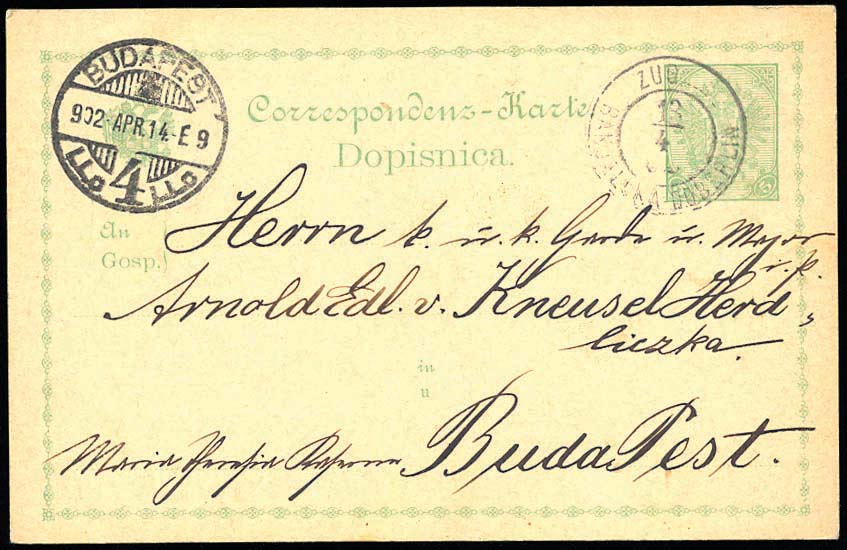 BUDAPEST
902-APR.14-E 9
4
Correspondenz-Karte
Dopisnica.
ZUG
13
4
An
Gosp.
Herrn k. u. k. Garde u. Major
i. p.
Arnold Edl. v. Kneusel Herd„
liczka.
in
u
Maria Theresia Kaserne BudaPest.